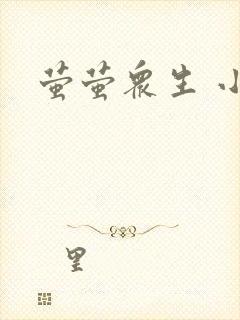 萤萤众生 小
里